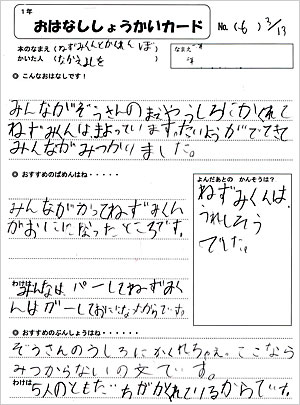 1年
おはなししょうかいカード No.(6) 3/13
本のなまえ(ねずみくんとかくれんぼ)
かいた人(なかえよしを)
なまえ
◎ こんなおはなしです！
みんながぞうさんのまえやうしろにかくれて
ねずみくんは、まよっています。たいようがでてきて
みんながみつかりました。
◎ おすすめのばめんはね・・・・・
みんながかってねずみくん
がおにになったところです。
わけは
みんなは、パーしてねずみく
んはグーしておにになったからです。
よんだあとの かんそうは？
ねずみくんは、
うれしそう
でした。
◎ おすすめのぶんしょうはね・・・・・・
ぞうさんのうしろにかくれちゃえ。ここなら
みつからないの文です。
わけは
5人のともだちがかくれているからです。